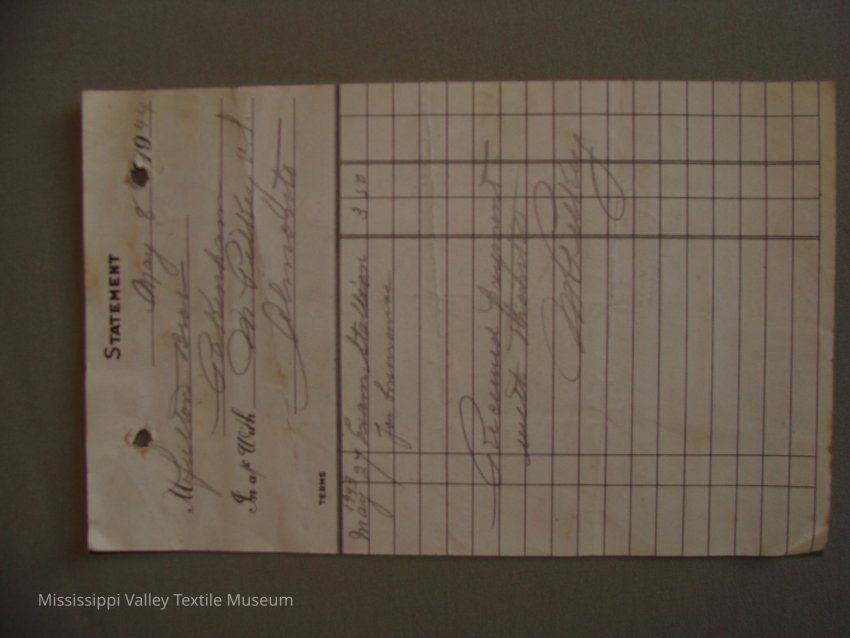 STATEMENT
May 8 1944
M Fulton Bros
Pakenham
In a/c With M Pilkey V.S.
Almonte
TERMS
1943
May 27 Exam Stallion 3 50
for Insurance
Received Payment
with Thanks
Mississippi Valley Textile Museum